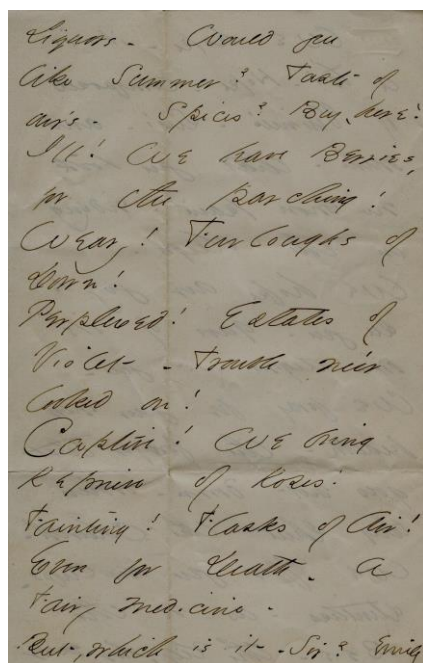 Liquors - Would you
like Summer? Taste of
our's - Spices? Buy, here!
Ill! We have Berries,
for the Parching!
Weary! Furloughs of
Down!
Perplexed! Estates of
Violet - Trouble ne'er
looked on!
Captive! We bring
Reprieve of Roses!
Fainting! Flasks of Air!
Even for Death - A
Fairy medicine -
But, which is it - Sir? Emily